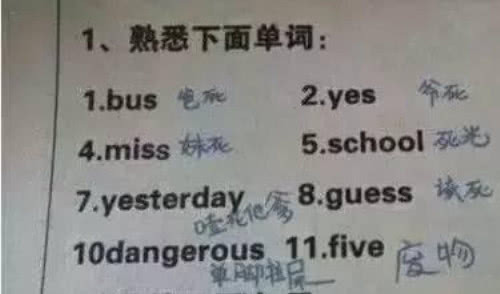 1、熟悉下面单词:
1.bus 爸死 2.yes 爷死
4.miss 妹死 5.school 死光
7.yesterday 8.guess 该死
噎死他爹
10dangerous 11.five 废物
单脚拉屎